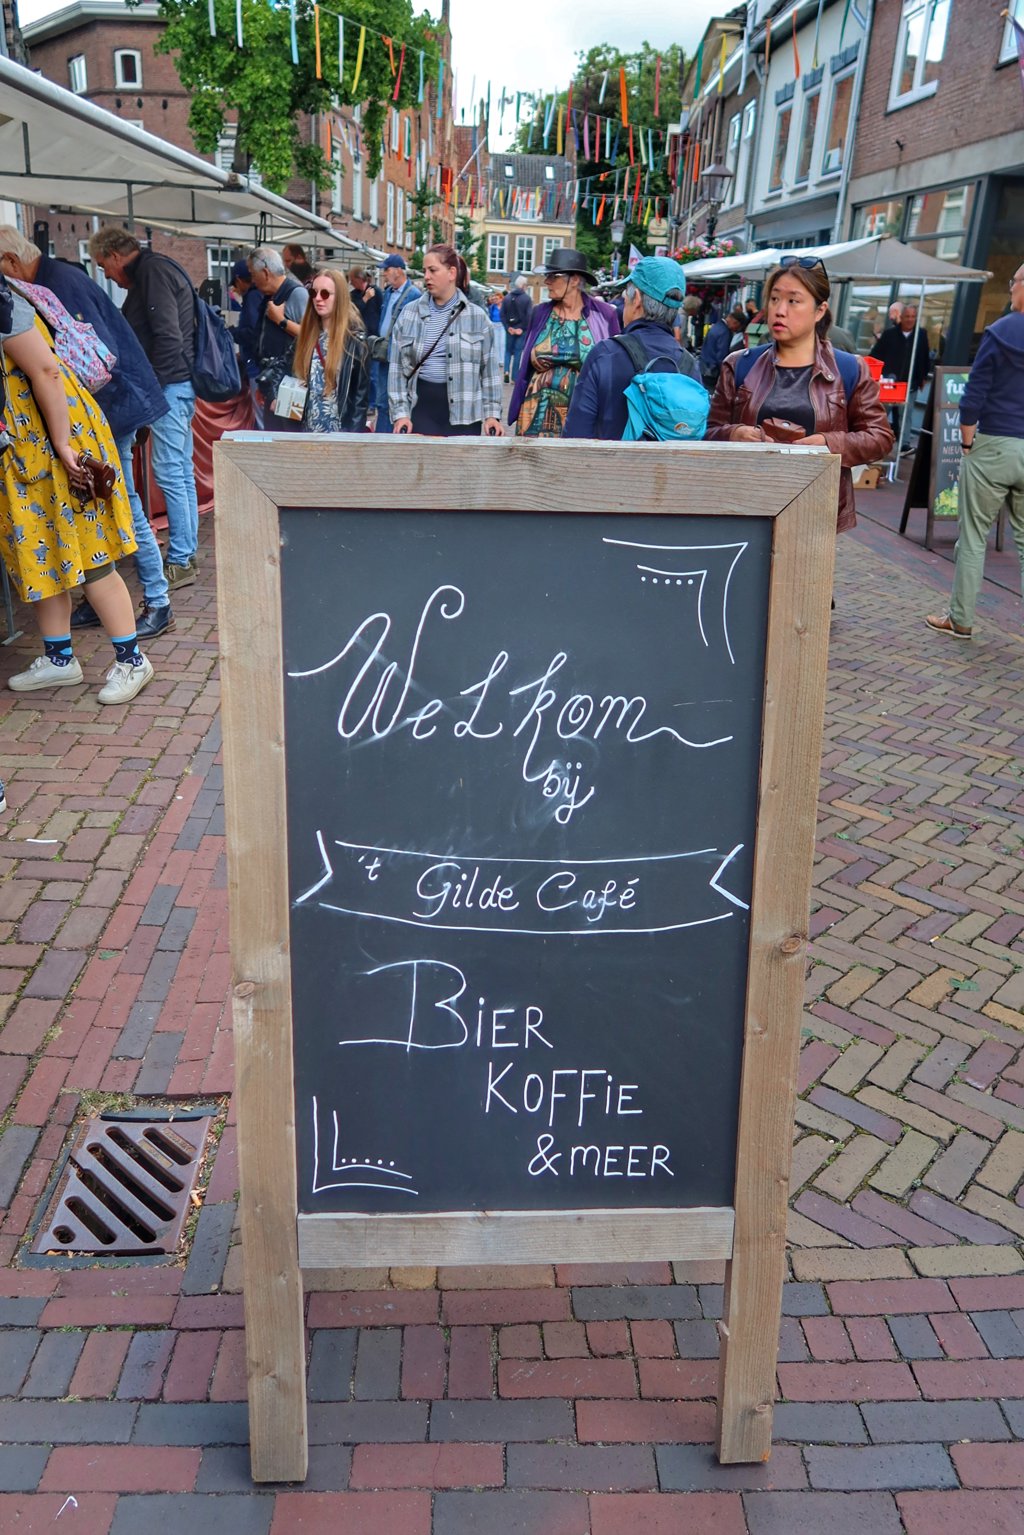 Welkom
bij
't Gilde Café
BiER
KOFFiE
& MEER